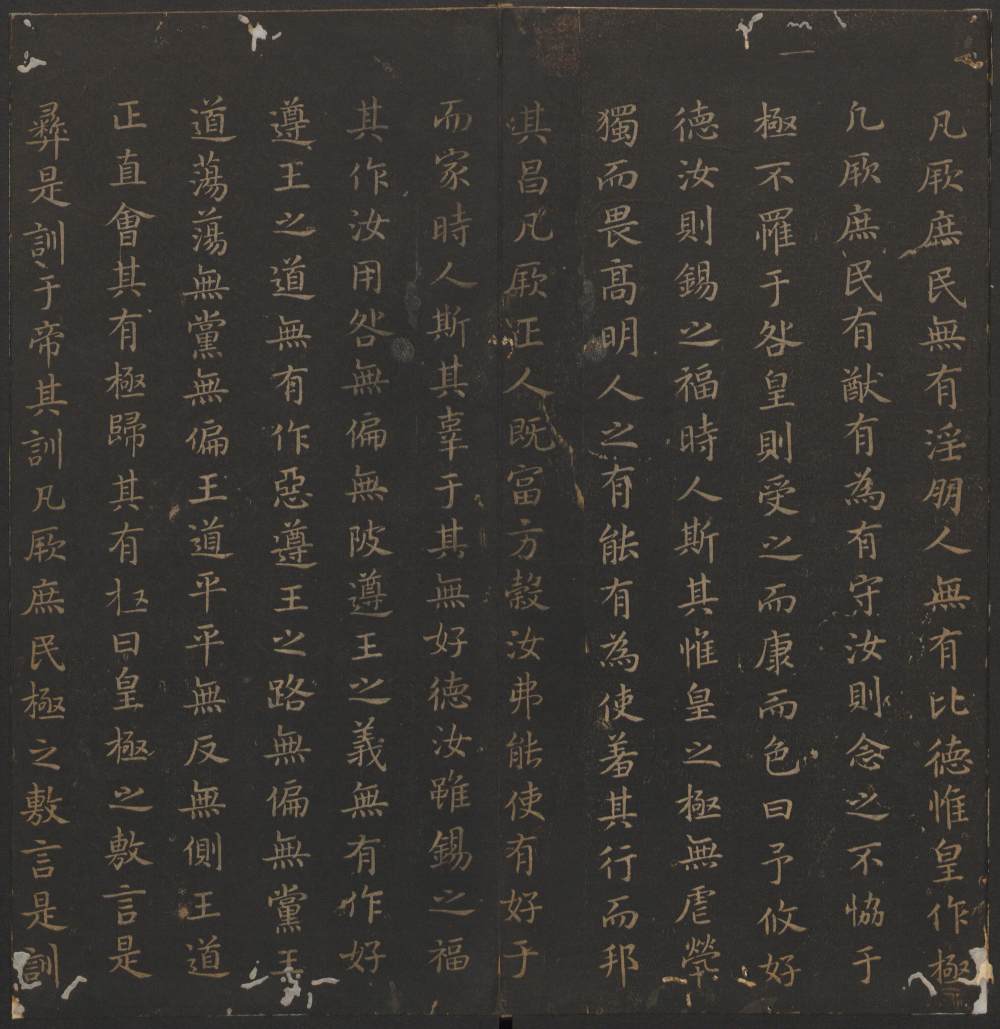 凡厥庶民無有淫朋人無有比德惟皇作極
凡厥庶民有猷有為有守汝則念之不恊于
極不罹于咎皇則受之而康而色曰予攸好
德汝則錫之福時人斯其惟皇之極無虐煢
獨而畏髙明人之有能有為使羞其行而邦
其昌凡厥正人既富方穀汝弗能使有好于
而家時人斯其辜于其無好德汝雖錫之福
其作汝用咎無偏無陂遵王之義無有作好
遵王之道無有作惡遵王之路無偏無黨王
道蕩蕩無黨無偏王道平平無反無側王道
正直會其有極歸其有极曰皇極之敷言是
彝是訓于帝其訓凡厥庶民極之敷言是訓